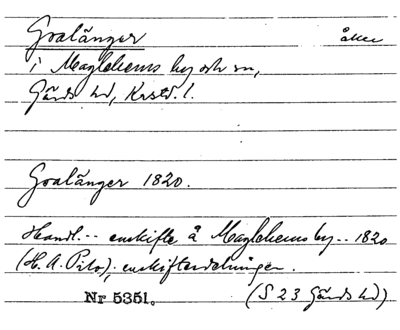 Gralänger åker
i Maglehems by och sn,
Gärds hd, Krstd. l.
Gralänger 1820.
Handl. -- enskifte å Maglehems by -- 1820
(H. A. Pilo), enskiftesdelningen.
Nr 5351. (S 23 Gärds hd)